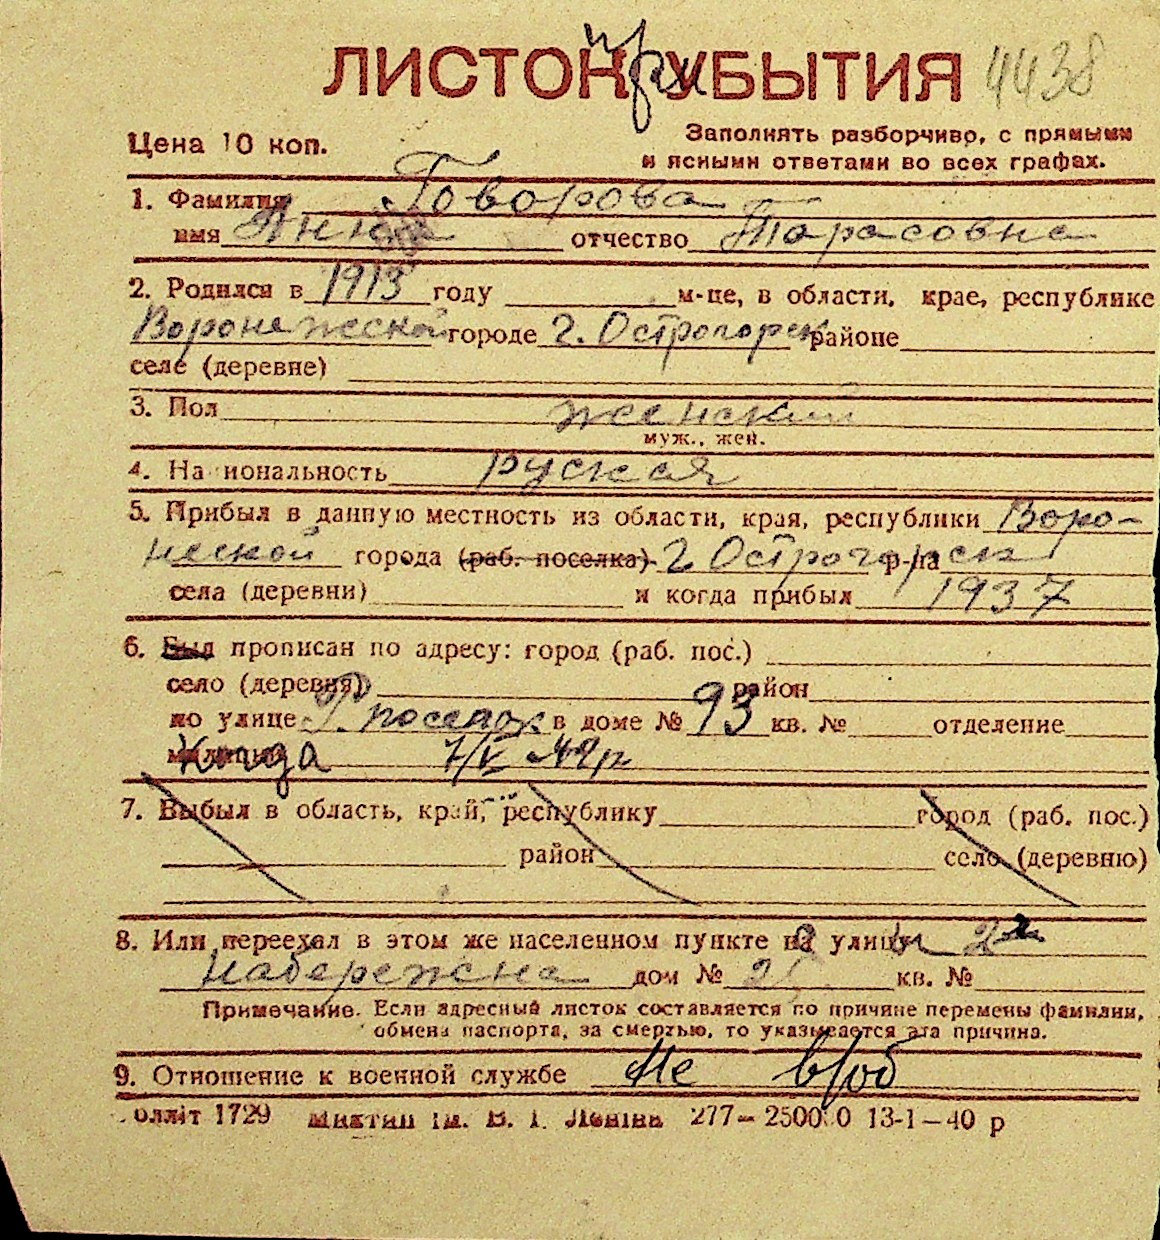 ЛИСТОК УБЫТИЯ 4438
при
Цена 10 коп.
Заполнять разборчиво, с прямыми
и ясными ответами во всех графах.
1. Фамилия Говорова
имя Анна отчество Тарасовна
2. Родился в 1913 году м-це, в области, крае, республике
Воронежской городе г. Острогорск районе
селе (деревне)
3. Пол женский
муж., жен.
4. Национальность руская
5. Прибыл в данную местность из области, края, республики Воро-
неской города (раб. поселка) г Острогорск р-на
села (деревни) и когда прибыл 1937
6. Был прописан по адресу: город (раб. пос.)
село (деревня) район
по улице Р. поселок в доме № 93 кв. № отделение
милиции Когда 7/V 49р
7. Выбыл в область, край, республику город (раб. пос.)
район село (деревню)
8. Или переехал в этом же населенном пункте на улицу 2я
Набережна дом № кв. №
Примечание. Если адресный листок составляется по причине перемены фамилии,
обмена паспорта, за смертью, то указывается эта причина.
9. Отношение к военной службе Не в/об
Обллiт 1729 iм. В. I. Ленiна 277—2500 0 13-1—40 р